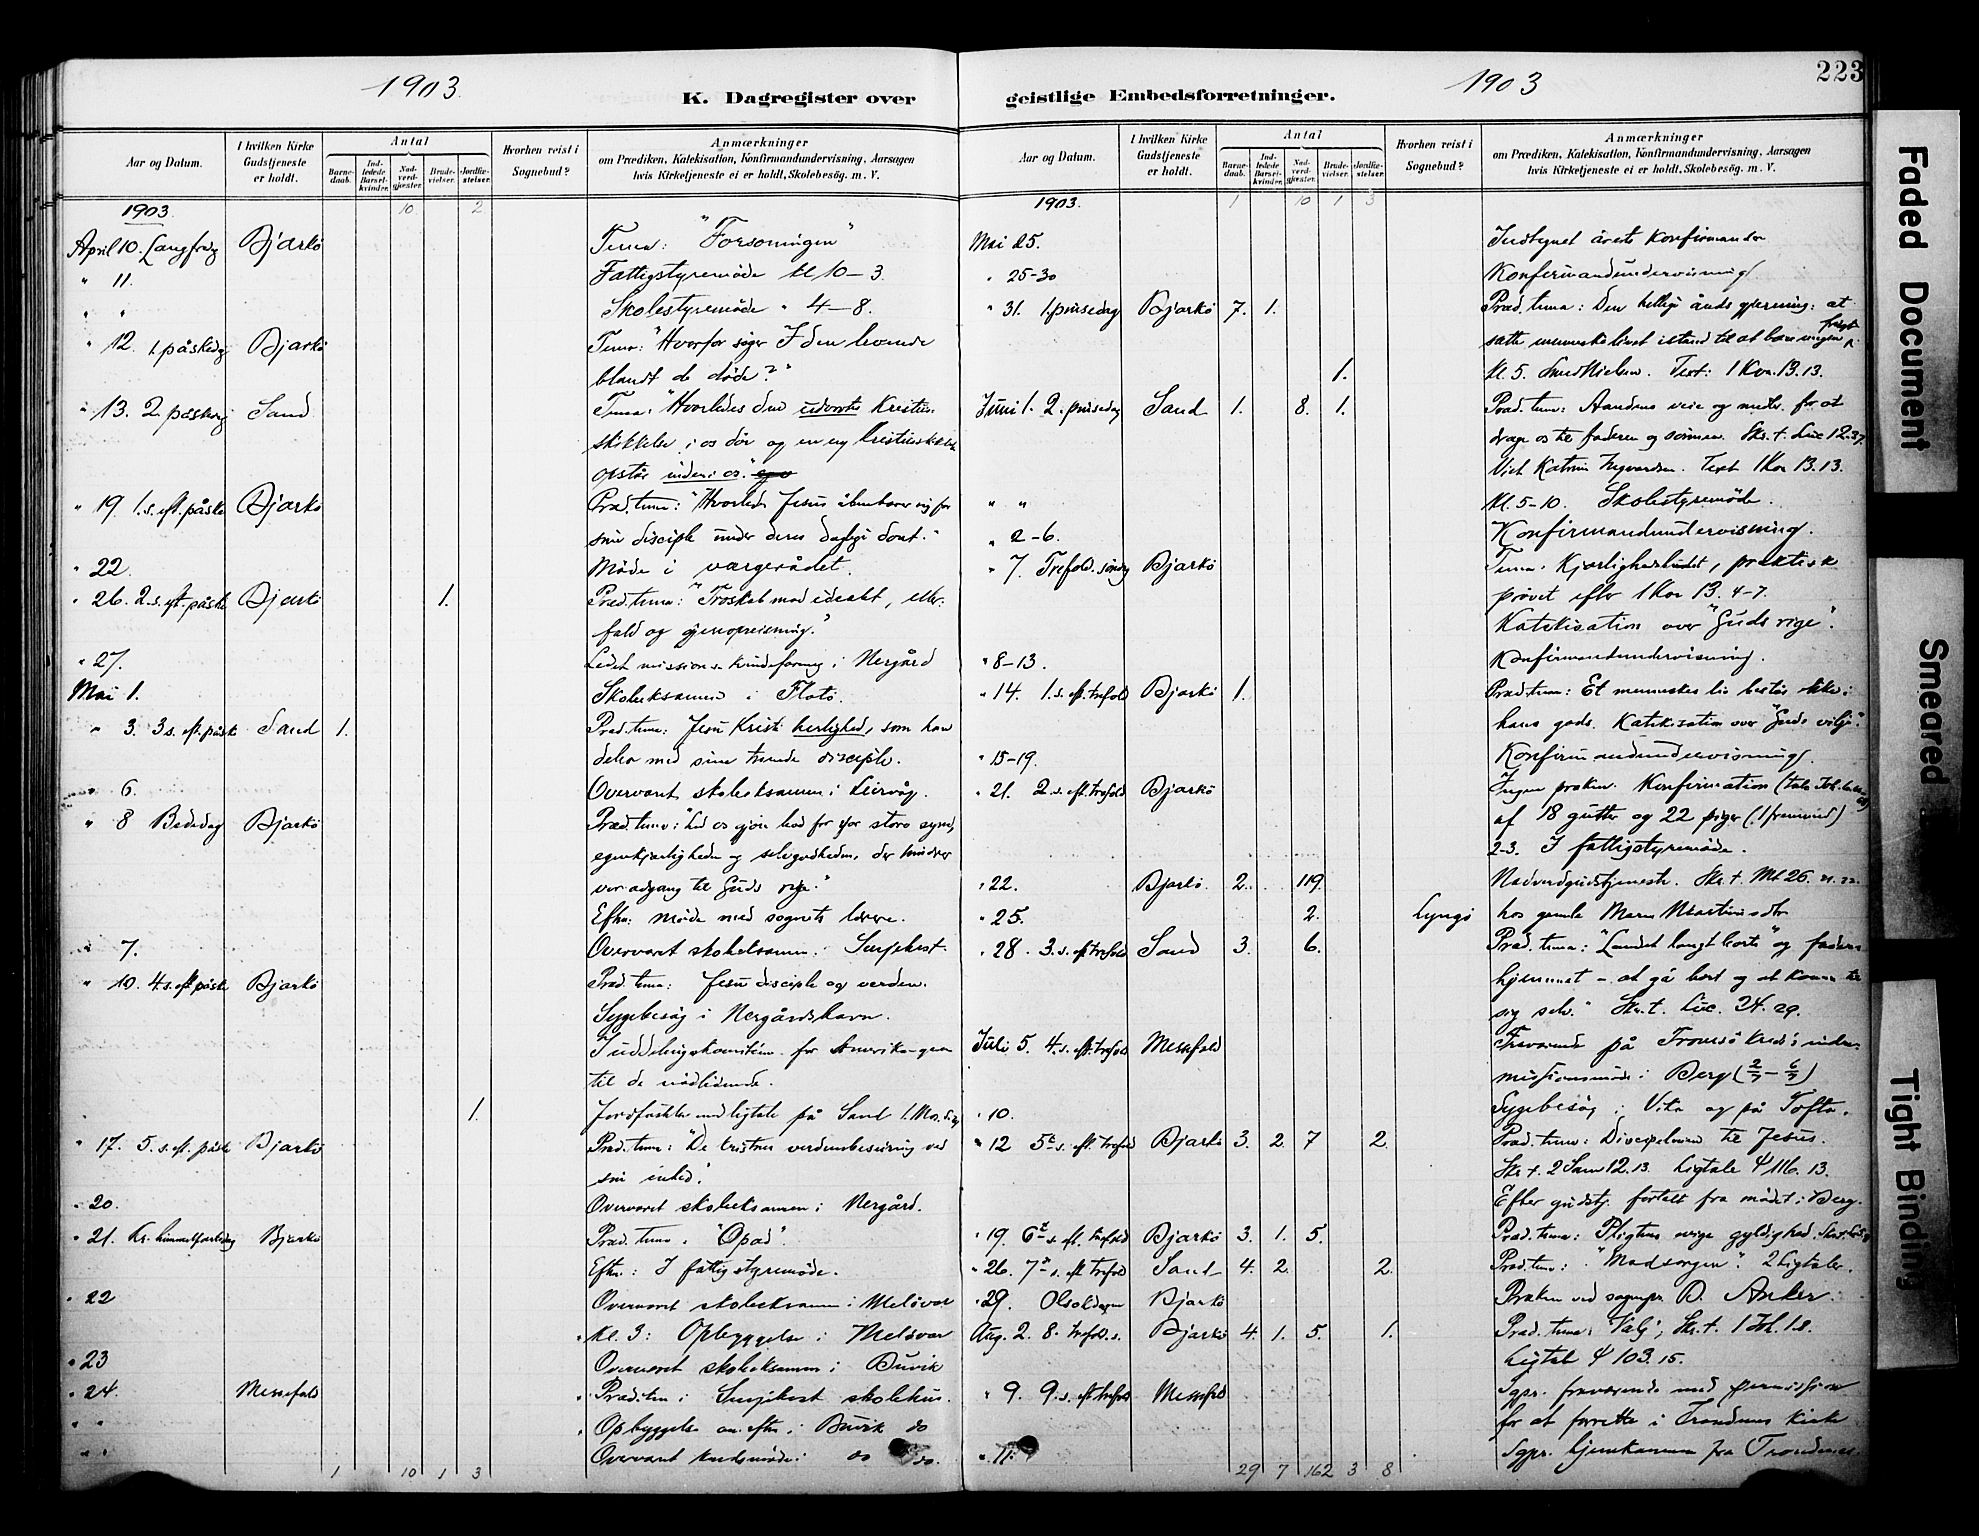 1903
K. Dagregister over
Aar og Datum.
I hvilken Kirke Gudstjeneste er holdt.
Antal
Barnedaab.
Indledede Barselkvinder.
Nadverdgjæster.
Brudevielser.
Jordfæstelser.
Hvorhen reist i Sognebud?
Anmærkninger
om Prædiken, Katekisation, Konfirmandundervisning, Aarsagen
hvis Kirketjeneste ei er holdt, Skolebesøg. m. V.
1903 10 2
April 10. Langfredg Bjarkö Tema: "Forsoningen"
" 11. Fattigstyremöde kl 10-3.
" " Skolestyremöde " 4-8.
" 12. 1. påskedag Bjarkö Tema: "Hvorfor söger I den levende
blandt de döde?"
" 13. 2. påskedag Sand Tema: "Hvorledes den udvortes Kristus
skikkelse i os dör og en ny
opstår inden i os."
" 19. 1. s. eft. påske Bjarkö Præd. tema: "Hvorledes Jesus åbenbarer sig for
sine disciple under deres daglige dont."
" 22. Möde i værgerådet.
" 26. 2. s. eft. påske Bjarkö 1. Præd. tema: "Troskab mod idealet,
fald og gjenopreisning."
" 27. Ledet missions kvindeforening i Nergård
Mai 1. Skoleksamen i Flatö.
" 3. 3 s. eft. påske Sand 1. Præd. tema: Jesu Kristi herlighed, som han
deler med sine disciple.
" 6. Overværet skoleeksamen i Leirvåg.
" 8 Bededag Bjarkö Præd. tema: Lad os gjöre bod for vor store synd,
egenkjærligheden og selvgodheden, der hindrer
vor adgang til Guds rige."
Eftm: möde med sognets lærere.
" 7. Overværet skoleksamen i
" 10. 4 s. eft påske Bjarkö Præd. tema: Jesu disciple og verden.
Sygebesög i Nergårdshavn.
I uddelingskomiteen for Amerika-
til de nödlidende.
1. Jordfæstelse med ligtale på Sand
" 17. 5. s. eft. påske Bjarkö Præd. tema: "De kristnes verdensbeseiring ved
sin enhed."
" 20. Overværet skoleeksamen i Nergård.
" 21. Kr. himmelfartsdag Bjarkö Præd. tema: "Opad".
Eftm: I fattigstyremöde.
" 22 Overværet skoleeksamen i Melövær
" Kl. 3: Opbyggelse i Melövær
" 23 Overværet skoleeksamen i Buvik
" 24. Messefald Præd. i skolehus.
" " Opbyggelse om eftm i Buvik do
" " Overværet do do.
1 10 1 3
1903
223
geistlige Embedsforretninger.
Aar og Datum.
I hvilken Kirke Gudstjeneste er holdt.
Antal
Barnedaab.
Indledede Barselkvinder.
Nadverdgjæster.
Brudevielser.
Jordfæstelser.
Hvorhen reist i Sognebud?
Anmærkninger
om Prædiken, Katekisation, Konfirmandundervisning, Aarsagen
hvis Kirketjeneste ei er holdt, Skolebesög. m. V.
1903. 1 10 1 3
Mai 25. Indtegnet årets Konfirmander
" 25-30 Konfirmandundervisning
" 31. 1. pinsedag Bjarkö 7. 1. Præd. tema: Den hellige ånds gjerning: at
sætte menneskelivet istand til at bære megen frugt
1. Kl. 5. Text: 1 Kor. 13.13.
Juni 1. 2. pinsedag Sand 1. 8. 1. Præd. tema: Aandens veie og midler for at
drage os til faderen og sönnen. Skr. t. Luc 12.37.
Viet Katrine Ingvardsen. Text 1 Kor 13.13.
" " Kl. 5-10. Skolestyremöde.
" 2-6. Konfirmandundervisning.
" 7. Trefold. söndg Bjarkö Tema. Kjærlighedsbudet, praktisk
prövet efter 1 Kor 13. 4-7.
Katekisation over "Guds rige".
" 8-13. Konfirmandundervisning.
" 14. 1. s. eft. trefold Bjarkö 1. Præd. tema: Et menneskes liv består ikke i
hans gods. Katekisation over "Guds vilje".
" 15-19. Konfirmandundervisning.
" 21. 2. s. eft. trefold Bjarkö Ingen præken. Konfirmation
af 18 gutter og 22 piger
2-3. I fattigstyremöde.
" 22. Bjarkö. 2. 119. Nadverdgudstjeneste. Skr. t. Mt 26. 21.22.
" 25. 2. Lyngö hos gamle Maren Martinsdtr
" 28. 3. s. eft trefold Sand 3. 6. Præd. tema: "Landet langt borte" og fader-
hjemmet - at gå bort og at komme til
sig selv." Skr. t. Luc. 24. 29.
Juli 5. 4. s. eft. trefold Messefald Fraværende på Tromsö Kreds's indre-
missionsmöde i Berg (2/7 - 6/7)
" 10. Sygebesög i Vika og på Tofta.
" 12 5te s. eft. trefold Bjarkö 3. 2. 7 2. Præd. tema: til Jesus.
Skr t. 2 Sam 12. 13. Ligtale Ψ 116. 13.
Efter gudstj. fortalt fra mödet i Berg.
" 19. 6te s. eft. trefold Bjarkö 3. 1. 5. Præd. tema: Pligtens evige gyldighed.
" 26. 7de s. eft trefold Sand 4. 2. 2. Præd. tema: "Madsorgen". 2 Ligtaler.
" 29. Olsokdagen Bjarkö Præken ved sognepr. D. Anker.
Aug. 2. 8. trefold. s. Bjarkö 4. 1. 5. 1. Præd. tema: "Valg", Skr. t. 1 Joh. 1.8.
Ligtale Ψ 103. 15.
" 9. 9. s. eft trefold Messefald Sgpr. fraværende med permission
for at forrette i Trondenes Kirke
" 11. Sgpr. hjemkommen fra Trondenes.
29 7 162 3 8
Faded Document
Smeared
Tight Binding